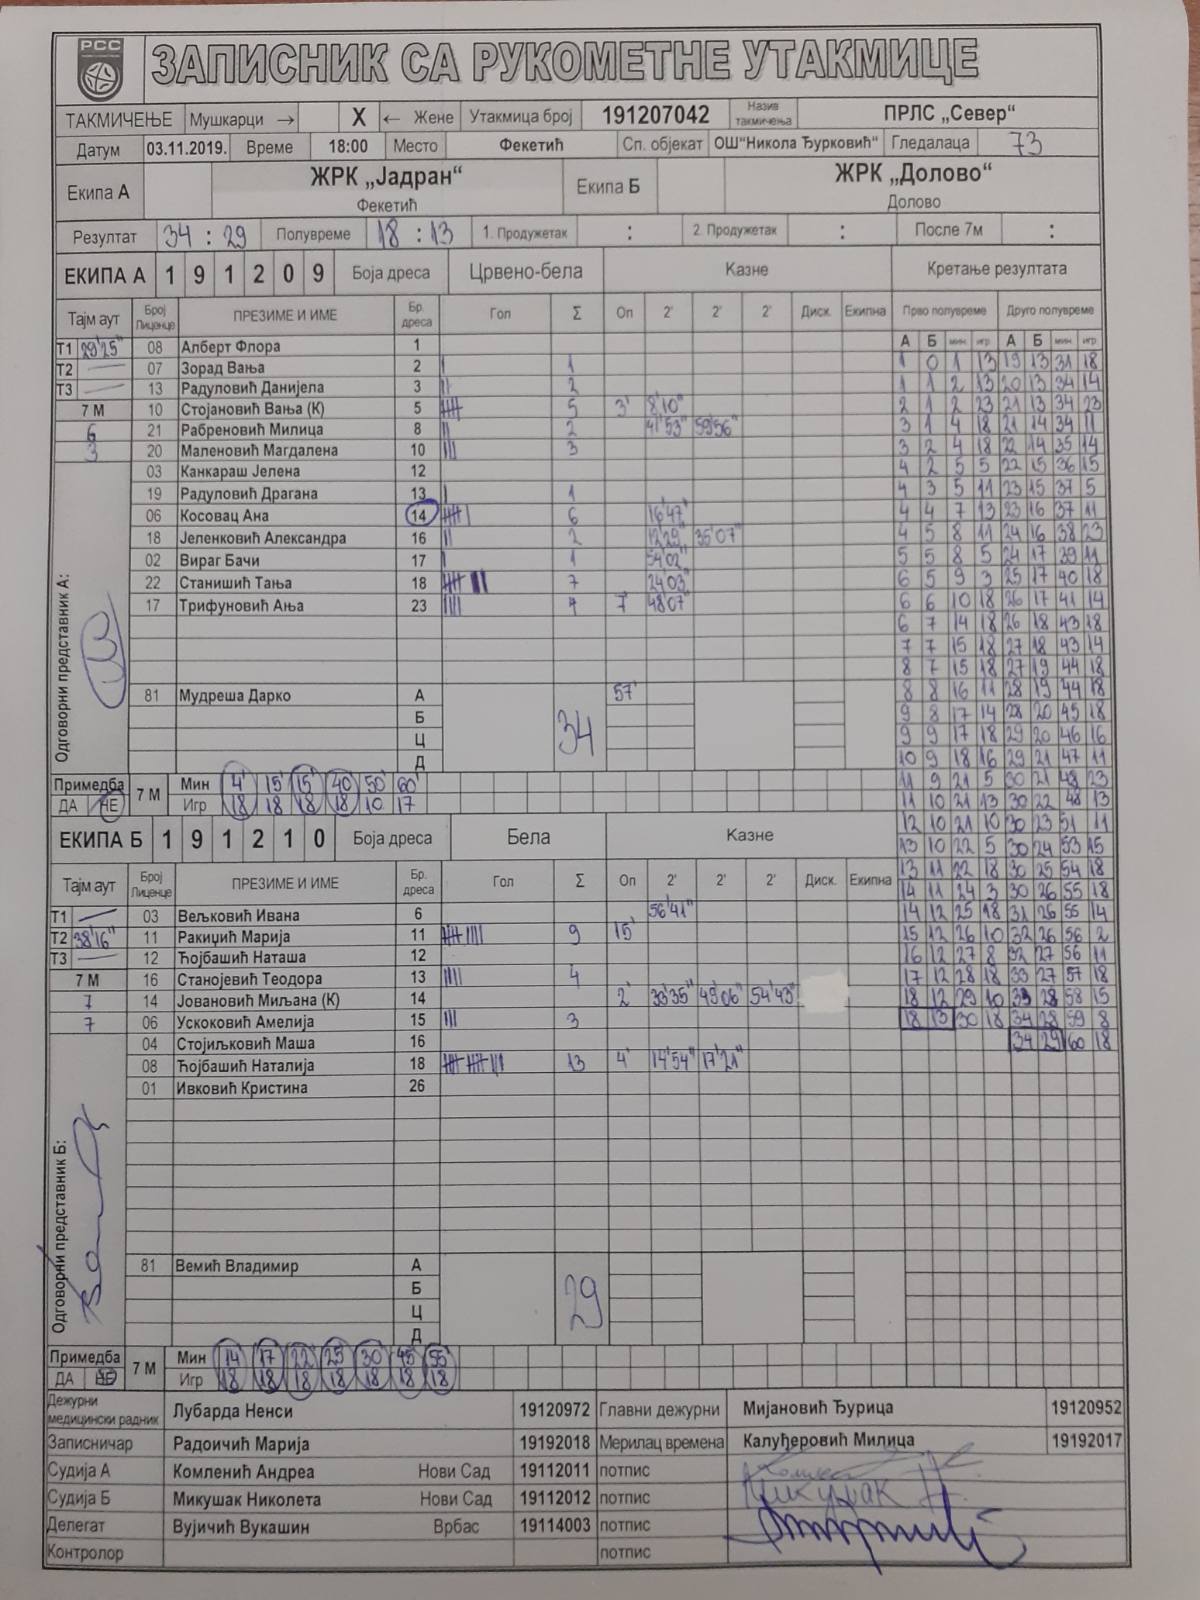 РСС
ЗАПИСНИК СА РУКОМЕТНЕ УТАКМИЦЕ
ТАКМИЧЕЊЕ Мушкарци → X ← Жене Утакмица број 191207042 Назив такмичења ПРЛС „Север“
Датум 03.11.2019. Време 18:00 Место Фекетић Сп. објекат ОШ“Никола Ђурковић“ Гледалаца 73
Екипа А ЖРК „Јадран“ Фекетић Екипа Б ЖРК „Долово“ Долово
Резултат 34 : 29 Полувреме 18 : 13 1. Продужетак : 2. Продужетак : После 7м :
ЕКИПА А 1 9 1 2 0 9 Боја дреса Црвено-бела Казне Кретање резултата
Тајм аут Број Лиценце ПРЕЗИМЕ И ИМЕ Бр. дреса Гол Σ Оп 2' 2' 2' Диск. Екипна Прво полувреме Друго полувреме
А Б мин игр А Б мин игр
Т1 29'25" 08 Алберт Флора 1
Т2 — 07 Зорад Вања 2 | 1 1 0 1 13 19 13 31 18
Т3 — 13 Радуловић Данијела 3 || 2 1 1 2 13 20 13 34 14
7 М 10 Стојановић Вања (К) 5 5 3' 8'10" 2 1 2 23 21 13 34 23
6 21 Рабреновић Милица 8 || 2 41'53" 59'56" 3 1 4 18 21 14 34 11
3 20 Маленовић Магдалена 10 ||| 3 3 2 4 18 22 14 35 14
03 Канкараш Јелена 12 4 2 5 5 22 15 36 15
19 Радуловић Драгана 13 | 1 4 3 5 11 23 15 37 5
06 Косовац Ана 14 6 16'47" 4 4 7 13 23 16 37 11
18 Јеленковић Александра 16 || 2 12'29" 35'07" 4 5 8 11 24 16 38 23
02 Вираг Бачи 17 | 1 54'02" 5 5 8 5 24 17 39 11
22 Станишић Тања 18 7 24'03" 6 5 9 3 25 17 40 18
17 Трифуновић Ања 23 |||| 4 7' 48'07" 6 6 10 18 26 17 41 14
6 7 14 18 26 18 43 18
7 7 15 18 27 18 43 14
8 7 15 18 27 19 44 18
81 Мудреша Дарко А 57' 8 8 16 11 28 19 44 18
Б 34 9 8 17 14 28 20 45 18
Ц 9 9 17 18 29 20 46 16
Д 10 9 18 16 29 21 47 11
Одговорни представник А:
Примедба 7 М Мин 4' 15' 15' 40 50' 60' 11 9 21 5 30 21 48 23
ДА НЕ Игр 18 18 18 18 10 17 11 10 21 13 30 22 48 13
ЕКИПА Б 1 9 1 2 1 0 Боја дреса Бела Казне 12 10 21 10 30 23 51 11
13 10 22 5 30 24 53 15
Тајм аут Број Лиценце ПРЕЗИМЕ И ИМЕ Бр. дреса Гол Σ Оп 2' 2' 2' Диск. Екипна 13 11 22 18 30 25 54 18
14 11 24 3 30 26 55 18
Т1 — 03 Вељковић Ивана 6 56'41" 14 12 25 18 31 26 55 14
Т2 38'16" 11 Ракиџић Марија 11 9 15' 15 12 26 10 32 26 56 2
Т3 — 12 Ћојбашић Наташа 12 16 12 27 8 32 27 56 11
7 М 16 Станојевић Теодора 13 |||| 4 17 12 28 18 33 27 57 18
7 14 Јовановић Миљана (К) 14 2' 49'06" 54'49" 18 12 29 10 33 28 58 15
7 06 Ускоковић Амелија 15 ||| 3 18 13 30 18 34 28 59 8
04 Стојиљковић Маша 16 34 29 60 18
08 Ћојбашић Наталија 18 13 4' 14'54" 17'21"
01 Ивковић Кристина 26
Одговорни представник Б:
81 Вемић Владимир А
Б 29
Ц
Д
Примедба 7 М Мин 14' 17 22' 25 30' 45' 55'
ДА НЕ Игр 18 18 18 18 18 18 18
Дежурни медицински радник Лубарда Ненси 19120972 Главни дежурни Мијановић Ђурица 19120952
Записничар Радоичић Марија 19192018 Мерилац времена Калуђеровић Милица 19192017
Судија А Комленић Андреа Нови Сад 19112011 потпис
Судија Б Микушак Николета Нови Сад 19112012 потпис Микушак Н.
Делегат Вујичић Вукашин Врбас 19114003 потпис
Контролор потпис